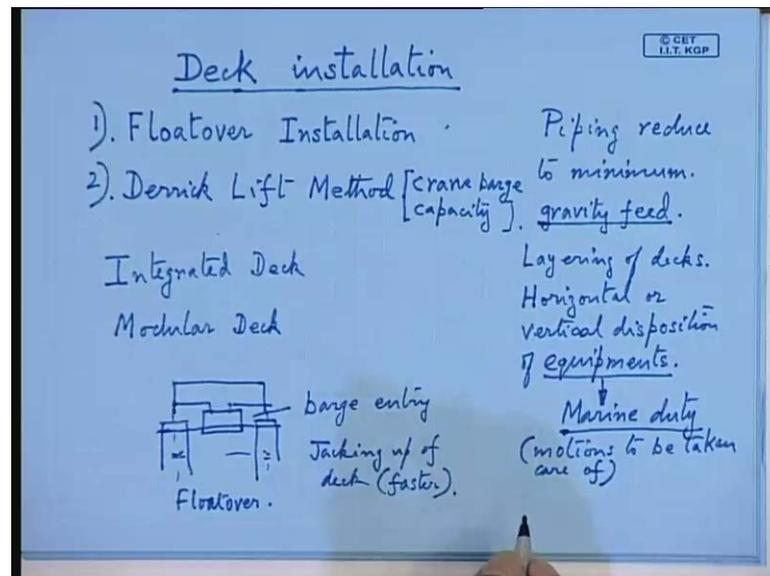 © CET
I.I.T. KGP
Deck installation
1). Floatover Installation
2). Derrick Lift Method [crane barge
capacity].
Integrated Deck
Modular Deck
barge entry
Jacking up of
deck (faster).
Floatover.
Piping reduce
to minimum.
gravity feed.
Layering of decks.
Horizontal or
vertical disposition
of equipments.
Marine duty
(motions to be taken
care of)